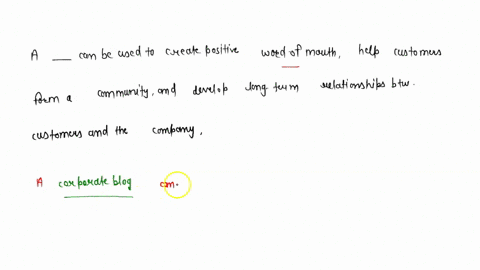 A ___ can be used to create positive word of mouth, help customers
form a community, and develop long term relationships btw.
customers and the company,
A corporate blog can.